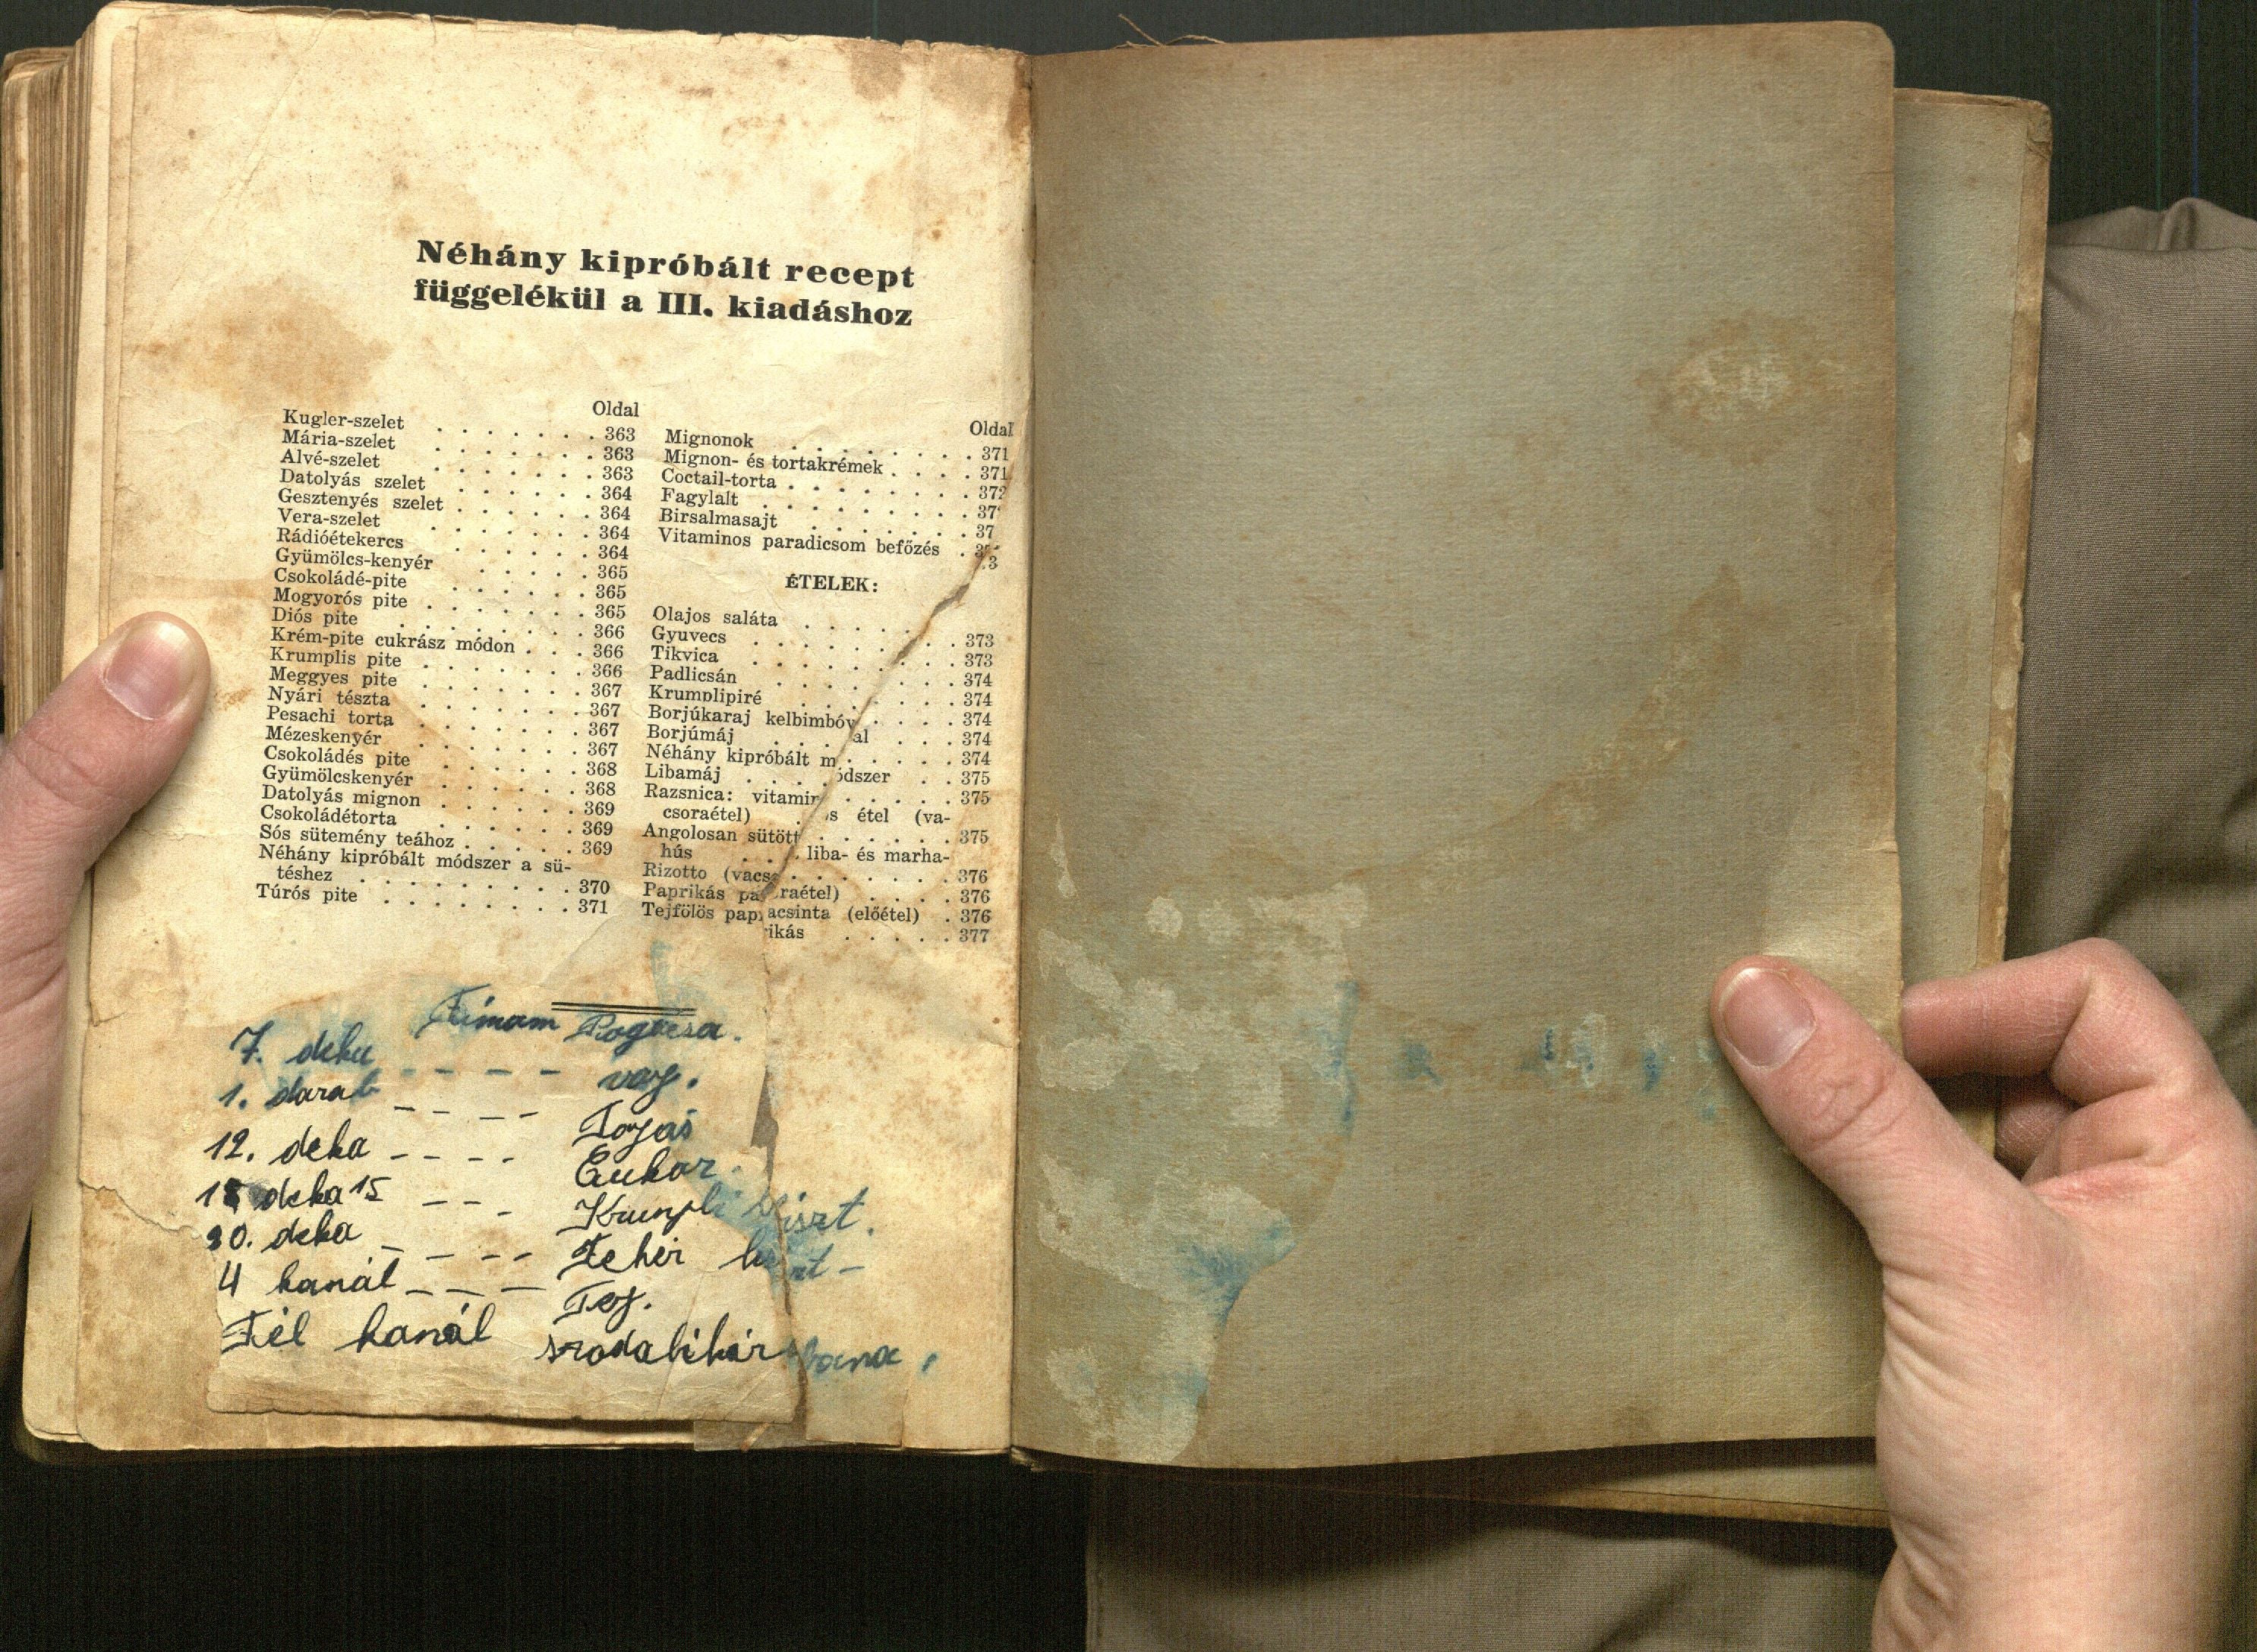 Néhány kipróbált recept
függelékül a III. kiadáshoz
Oldal
Kugler-szelet . . . . . . . 363
Mária-szelet . . . . . . . 363
Alvé-szelet . . . . . . . 363
Datolyás szelet . . . . . . 364
Gesztenyés szelet . . . . . . 364
Vera-szelet . . . . . . . 364
Rádióétekercs . . . . . . 364
Gyümölcs-kenyér . . . . . . 365
Csokoládé-pite . . . . . . 365
Mogyorós pite . . . . . . . 365
Diós pite . . . . . . . . 366
Krém-pite cukrász módon . . . 366
Krumplis pite . . . . . . . 366
Meggyes pite . . . . . . . 367
Nyári tészta . . . . . . . 367
Pesachi torta . . . . . . . 367
Mézeskenyér . . . . . . . 367
Csokoládés pite . . . . . . 368
Gyümölcskenyér . . . . . . 368
Datolyás mignon . . . . . . 369
Csokoládétorta . . . . . . 369
Sós sütemény teához . . . . . 369
Néhány kipróbált módszer a sü-
téshez . . . . . . . . . 370
Túrós pite . . . . . . . . 371
Oldal
Mignonok . . . . . . . . 371
Mignon- és tortakrémek . . . . 371
Coctail-torta . . . . . . . . 372
Fagylalt . . . . . . . . . 37
Birsalmasajt . . . . . . . 37
Vitaminos paradicsom befőzés .
ÉTELEK:
Olajos saláta . . . . . . . 373
Gyuvecs . . . . . . . . . 373
Tikvica . . . . . . . . . 374
Padlicsán . . . . . . . . 374
Krumplipiré . . . . . . . . 374
Borjúkaraj kelbimbóval . . . . 374
Borjúmáj . . . . . . . . 374
Néhány kipróbált módszer . . 375
Libamáj . . . . . . . . . 375
Razsnica: vitaminos étel (va-
csoraétel) . . . . . . . . 375
Angolosan sütött liba- és marha-
hús . . . . . . . . . . 376
Rizotto (vacsoraétel) . . . . 376
Paprikás palacsinta (előétel) . 376
Tejfölös paprikás . . . . . 377
Fimam Pogácsa.
7. deka - - - - vaj.
1. darab - - - - Tojás
12. deka - - - - Cukor.
deka 15 - - - Krumpli liszt.
30. deka - - - - Fehér liszt -
4 kanál - - - - Tej.
Fél kanál szodabikárbana.